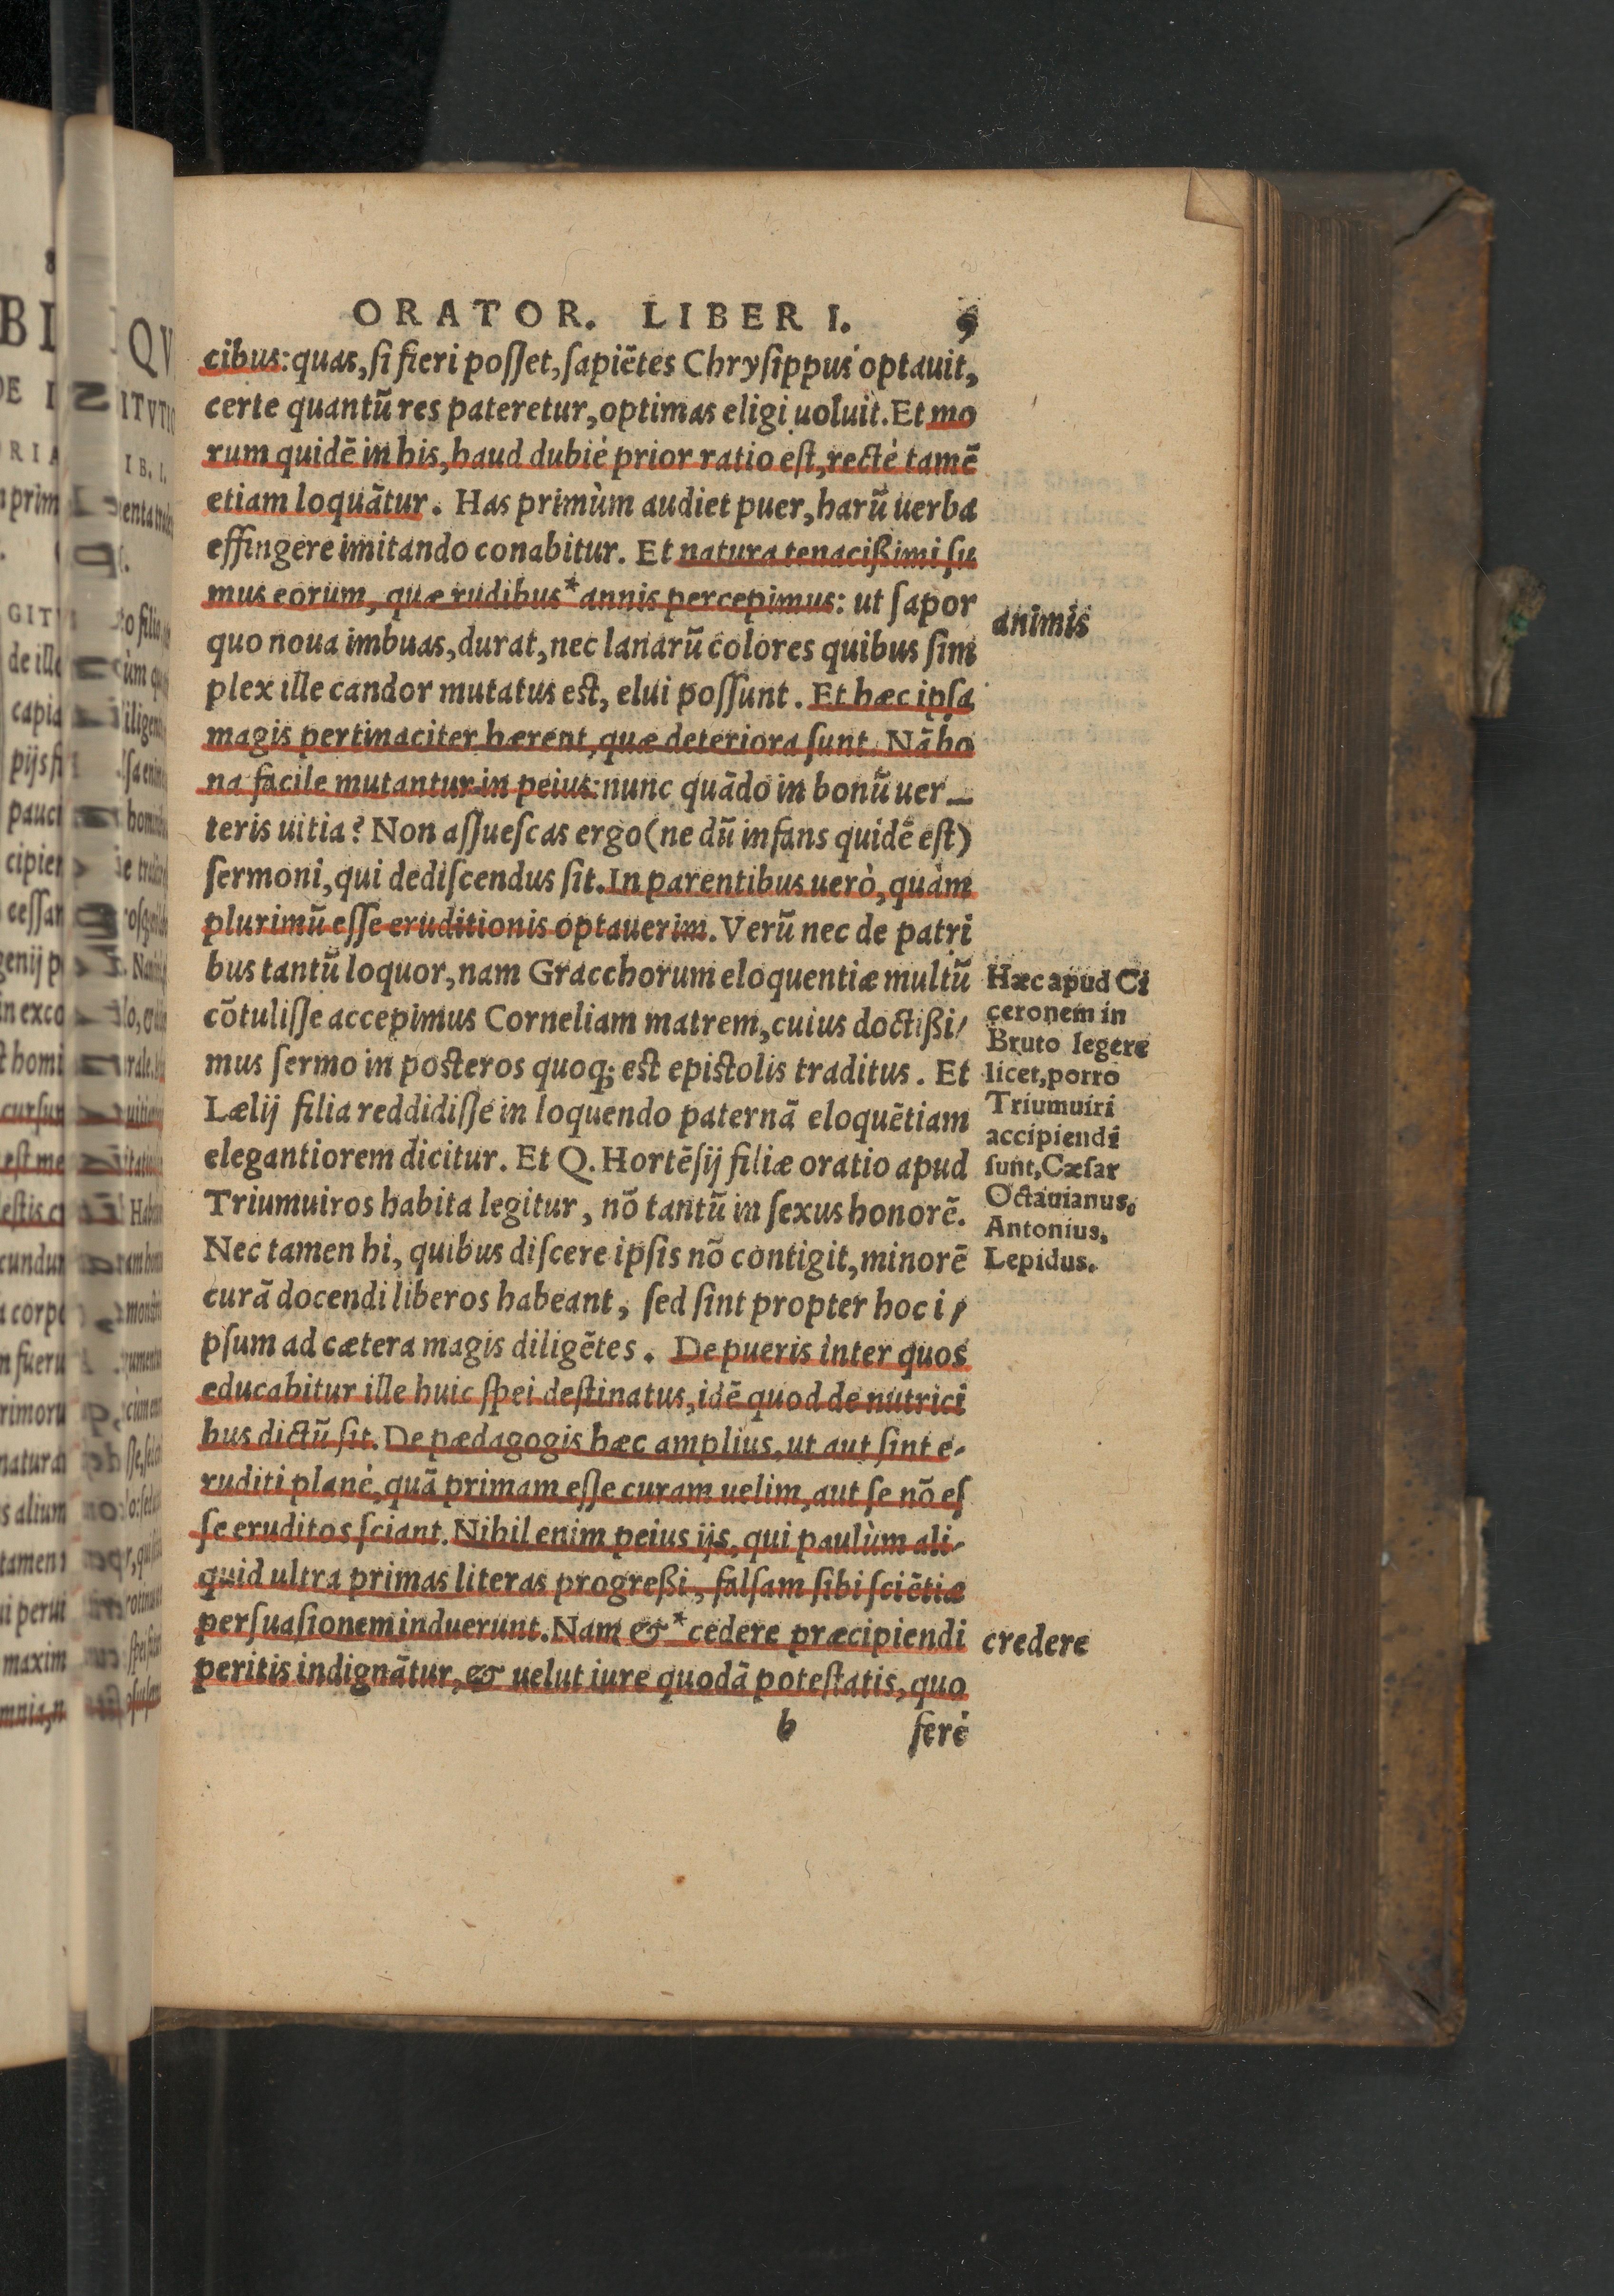 ORATOR. LIBER I. 9
cibus: quas, ſi fieri poſſet, ſapiẽtes Chryſippus optauit,
certe quantũ res pateretur, optimas eligi uoluit. Et mo
rum quidẽ in his, haud dubiè prior ratio eſt, rectè tamẽ
etiam loquãtur. Has primùm audiet puer, harũ uerba
effingere imitando conabitur. Et natura tenacißimi ſu
mus eorum, quæ rudibus * annis percepimus: ut ſapor
animis
quo noua imbuas, durat, nec lanarũ colores quibus ſim
plex ille candor mutatus eſt, elui poſſunt. Et hæc ipſa
magis pertinaciter hærent, quæ deteriora ſunt. Nã bo
na facile mutantur in peius: nunc quãdo in bonũ uer_
teris uitia? Non aſſueſcas ergo (ne dũ infans quidẽ eſt)
ſermoni, qui dediſcendus ſit. In parentibus uerò, quàm
plurimũ eſſe eruditionis optauerim. Verũ nec de patri
bus tantũ loquor, nam Gracchorum eloquentiæ multũ
cõtuliſſe accepimus Corneliam matrem, cuius doctißi/
mus ſermo in poſteros quoq; eſt epiſtolis traditus. Et
Lælij filia reddidiſſe in loquendo paternã eloquẽtiam
elegantiorem dicitur. Et Q. Hortẽſij filiæ oratio apud
Triumuiros habita legitur, nõ tantũ in ſexus honorẽ.
Nec tamen hi, quibus diſcere ipſis nõ contigit, minorẽ
curã docendi liberos habeant, ſed ſint propter hoc i/
pſum ad cætera magis diligẽtes. De pueris inter quos
educabitur ille huic ſpei deſtinatus, idẽ quod de nutrici
bus dictũ ſit. De pædagogis hæc amplius, ut aut ſint e-
ruditi planè, quã primam eſſe curam uelim, aut ſe nõ eſ
ſe eruditos ſciant. Nihil enim peius ijs, qui paulùm ali-
quid ultra primas literas progreßi, falſam ſibi ſciẽtiæ
perſuaſionem induerunt. Nam & * cedere præcipiendi
credere
peritis indignãtur, & uelut iure quodã poteſtatis, quo
b ferè
Hæc apud Ci
ceronem in
Bruto legere
licet, porro
Triumuiri
accipiendi
ſunt, Cæſar
Octauianus.
Antonius.
Lepidus.